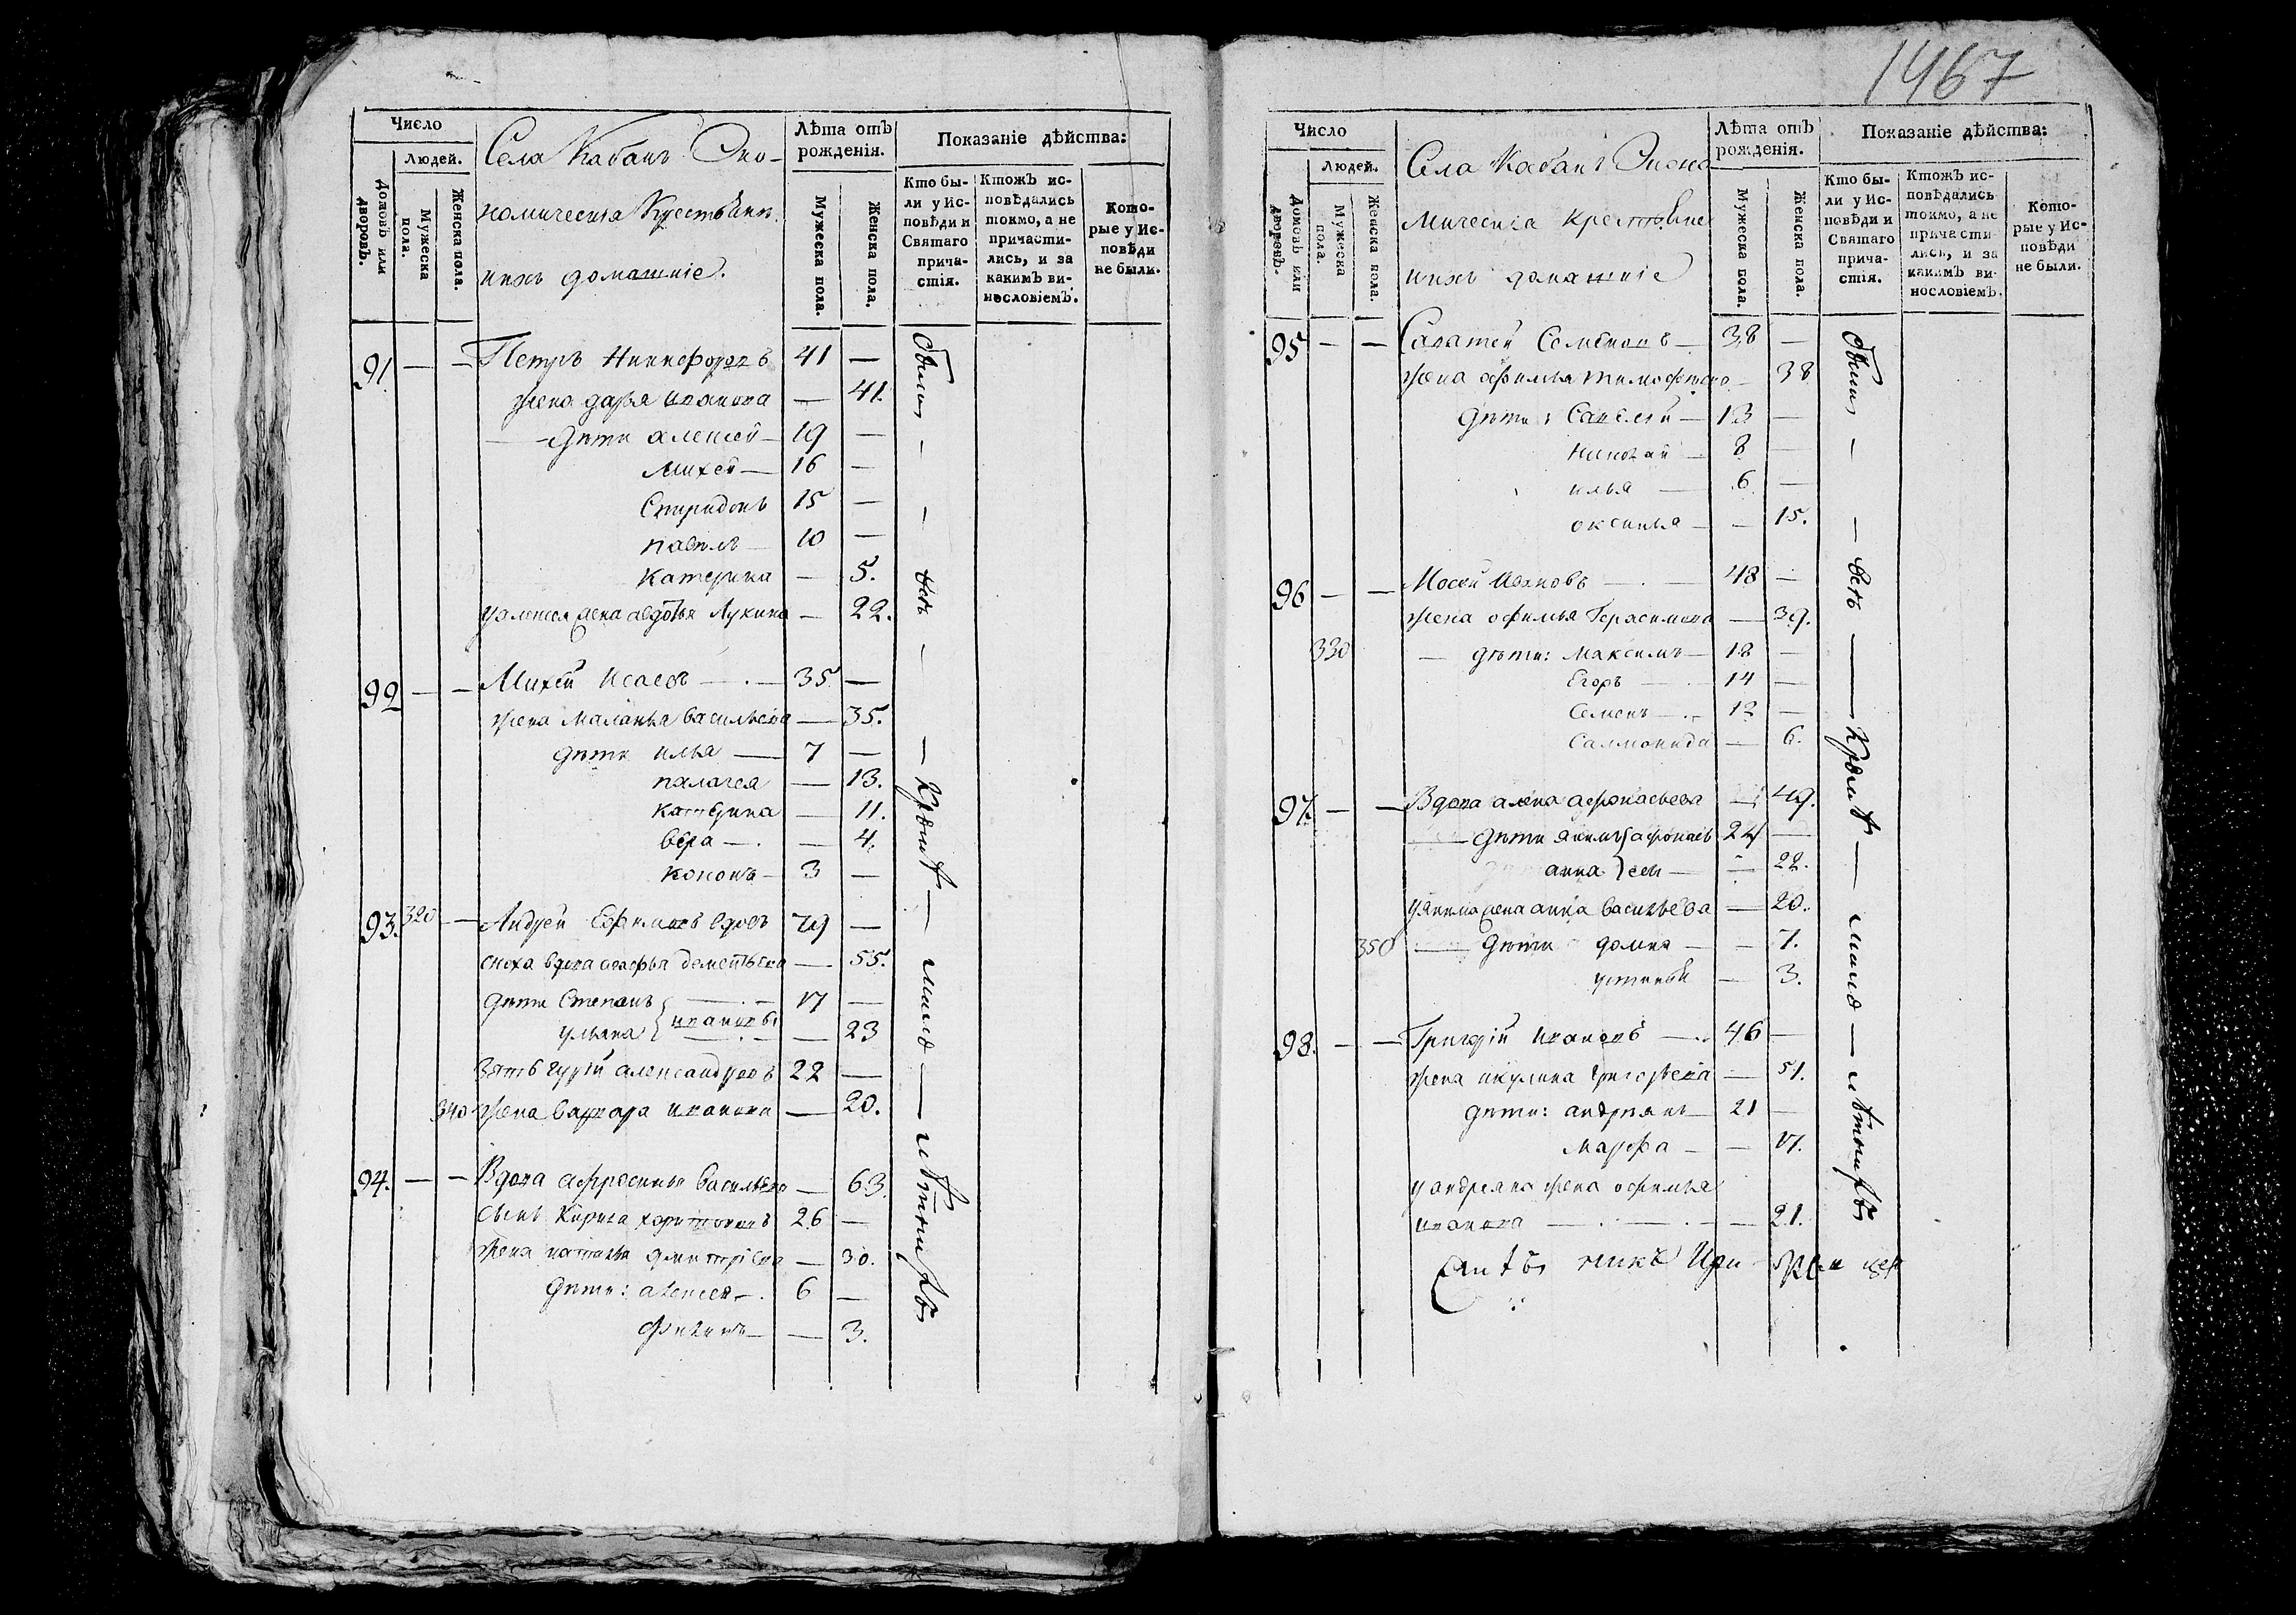 1467
Число
Людей.
Домовъ или дворовъ.
Мужеска пола.
Женска пола.
Села Кабанъ Эко-
номическия Крестьянѣ
ихъ домашніе.
Лѣта отъ рожденія.
Мужеска пола.
Женска пола.
Показаніе дѣйства:
Кто бы-
ли у Ис-
повѣди и
Святаго
прича-
стія.
Ктожъ ис-
повѣдались
токмо, а не
причасти-
лись, и за
какимъ ви-
нословіемъ.
Кото-
рые у Ис-
повѣди
не были.
91 — — Петръ Никифоровъ 41 —
жена дарья иванова — 41.
дѣти алексей 19 —
Михей 16 —
Спиридонъ 15 —
павелъ 10 —
Катерина — 5.
у алексея жена авдотья Лукина — 22.
92 — — Михей Исаевъ 35 —
жена маланья васильева — 35.
дѣти илья 7 —
палагея — 13.
катерина — 11.
вера — 4.
кононъ 3 —
93. 320 — Андрей Ефимовъ вдовъ 79 —
сноха вдова дементьева — 55.
дѣти Степанъ 17 —
ульяна ивановы — 23
зять гурїй александровъ 22 —
340 жена варвара иванова — 20.
94. — — Вдова афросинья васильева — 63.
сынъ Кирила харитоновъ 26 —
жена наталья дмитріева — 30.
дѣти: алексей 6 —
— 3.
были — — всѣ — — Кромѣ — мало — лѣтнихъ
Число
Людей.
Домовъ или дворовъ.
Мужеска пола.
Женска пола.
Села Кабанъ Эконо
мическия крестьяне
ихъ домашніе
Лѣта отъ рожденія.
Мужеска пола.
Женска пола.
Показаніе дѣйства:
Кто бы-
ли у Ис-
повѣди и
Святаго
прича-
стія.
Ктожъ ис-
повѣдались
токмо, а не
причасти-
лись, и за
какимъ ви-
нословіемъ.
Кото-
рые у Ис-
повѣди
не были.
95 — — Саватей Семеновъ 38 —
жена афимья тимофеева — 38
дѣти: Савелей 13 —
николай 8 —
илья 6 —
оксинья — 15.
96 — — Мосей Ивановъ 48 —
жена офимья Герасимова — 39.
330 — дѣти: максимъ 18 —
Егоръ 14 —
Семенъ 12 —
Саломонида — 6.
97. — — Вдова алена афонасьева — 49.
дѣти якимъ афонась 24 —
анна евы — 22.
у якима жена анна васильева — 20.
350 дѣти домна — 7.
устинья — 3.
98. — — Григорій ивановъ 46 —
жена акулина григорьева — 51.
дѣти: андриянъ 21 —
марфа — 17.
у андреяна жена офимья
иванова — 21.
были — — всѣ — Кромѣ — мало — лѣтнихъ